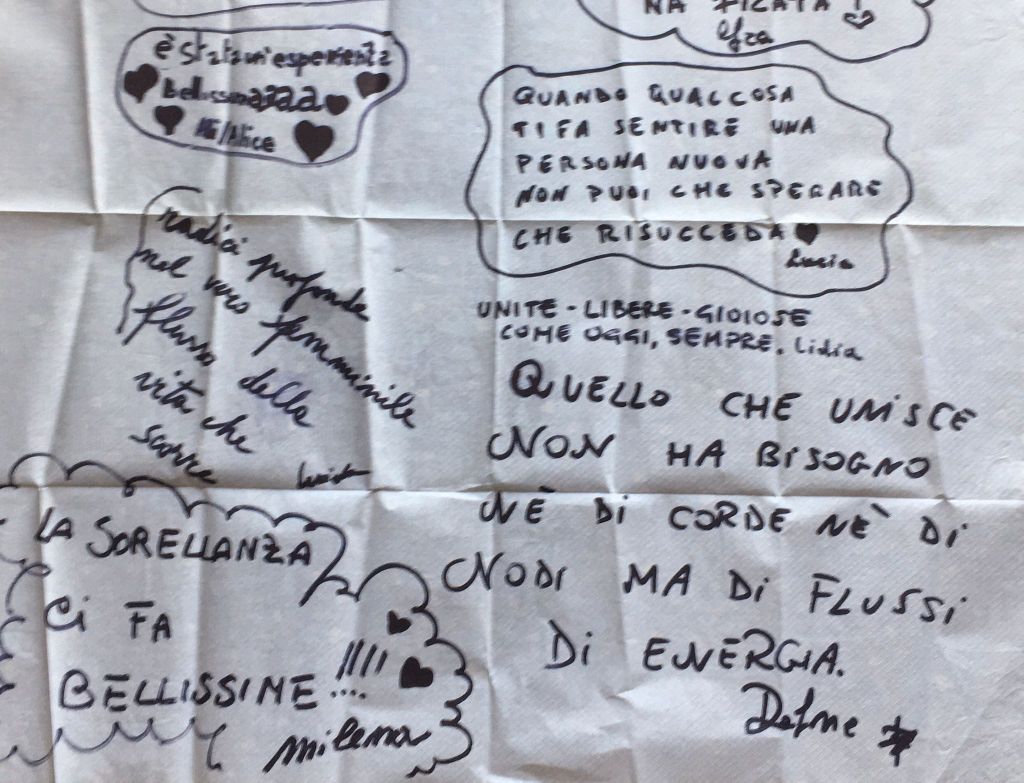 NA FICATA!
è stata un'esperienza
Bellissimaaaa
/Alice
QUANDO QUALCOSA
TI FA SENTIRE UNA
PERSONA NUOVA
NON PUOI CHE SPERARE
CHE RISUCCEDA
Lucia
radici profonde
nel vero femminile
flusso della
vita che
scorre
UNITE - LIBERE - GIOIOSE
COME OGGI, SEMPRE. Lidia
QUELLO CHE UNISCE
NON HA BISOGNO
NÈ DI CORDE NÈ DI
NODI MA DI FLUSSI
DI ENERGIA.
Dafne
LA SORELLANZA
CI FA
BELLISSIME!!!!
milena